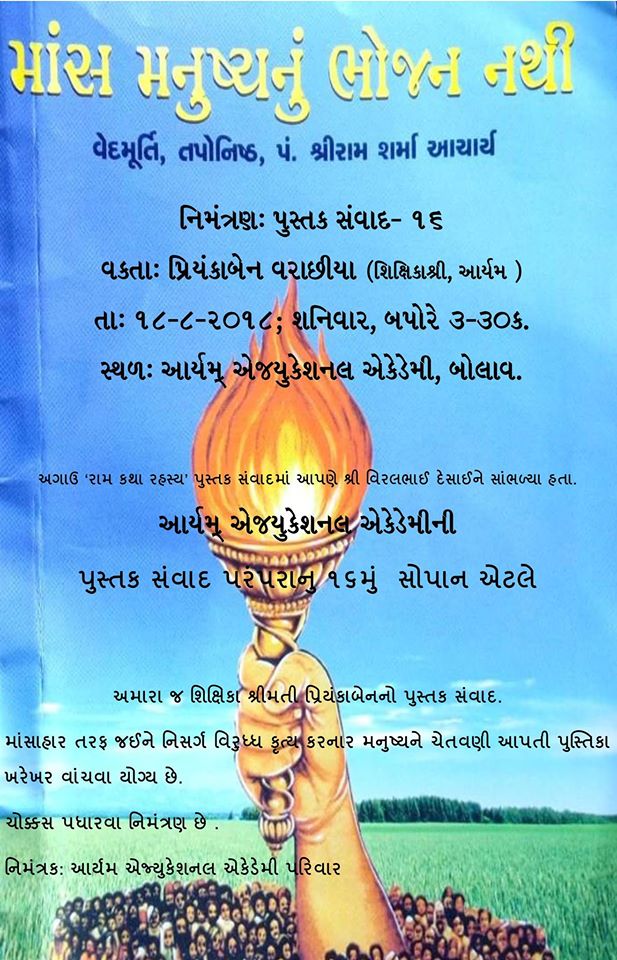 માંસ મનુષ્યનું ભોજન નથી
વેદમૂર્તિ, તપોનિષ્ઠ, પં. શ્રીરામ શર્મા આચાર્ય
નિમંત્રણઃ પુસ્તક સંવાદ- ૧૬
વક્તાઃ પ્રિયંકાબેન વરાછીયા (શિક્ષિકાશ્રી, આર્યમ )
તાઃ ૧૮-૮-૨૦૧૮; શનિવાર, બપોરે ૩-૩૦ક.
સ્થળઃ આર્યમ્ એજયુકેશનલ એકેડેમી, બોલાવ.
અગાઉ 'રામ કથા રહસ્ય' પુસ્તક સંવાદમાં આપણે શ્રી વિરલભાઈ દેસાઈને સાંભળ્યા હતા.
આર્યમ્ એજયુકેશનલ એકેડેમીની
પુસ્તક સંવાદ પરંપરાનુ ૧૬મું સોપાન એટલે
અમારા જ શિક્ષિકા શ્રીમતી પ્રિયંકાબેનનો પુસ્તક સંવાદ.
માંસાહાર તરફ જઈને નિસર્ગ વિરુધ્ધ કૃત્ય કરનાર મનુષ્યને ચેતવણી આપતી પુસ્તિકા
ખરેખર વાંચવા યોગ્ય છે.
ચોક્કસ પધારવા નિમંત્રણ છે .
નિમંત્રક: આર્યમ એજ્યુકેશનલ એકેડેમી પરિવાર